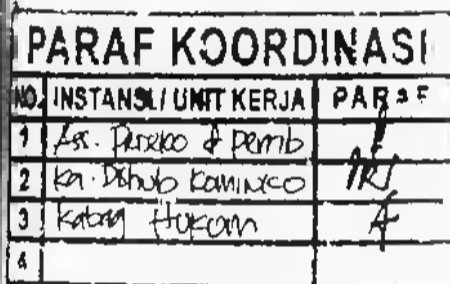 PARAF KOORDINASI
NO. INSTANSI / UNIT KERJA PARAF
1 Ass. Pereko & Pemb
2 Ka. Dishub Kominfo
3 Kabag Hukum
4